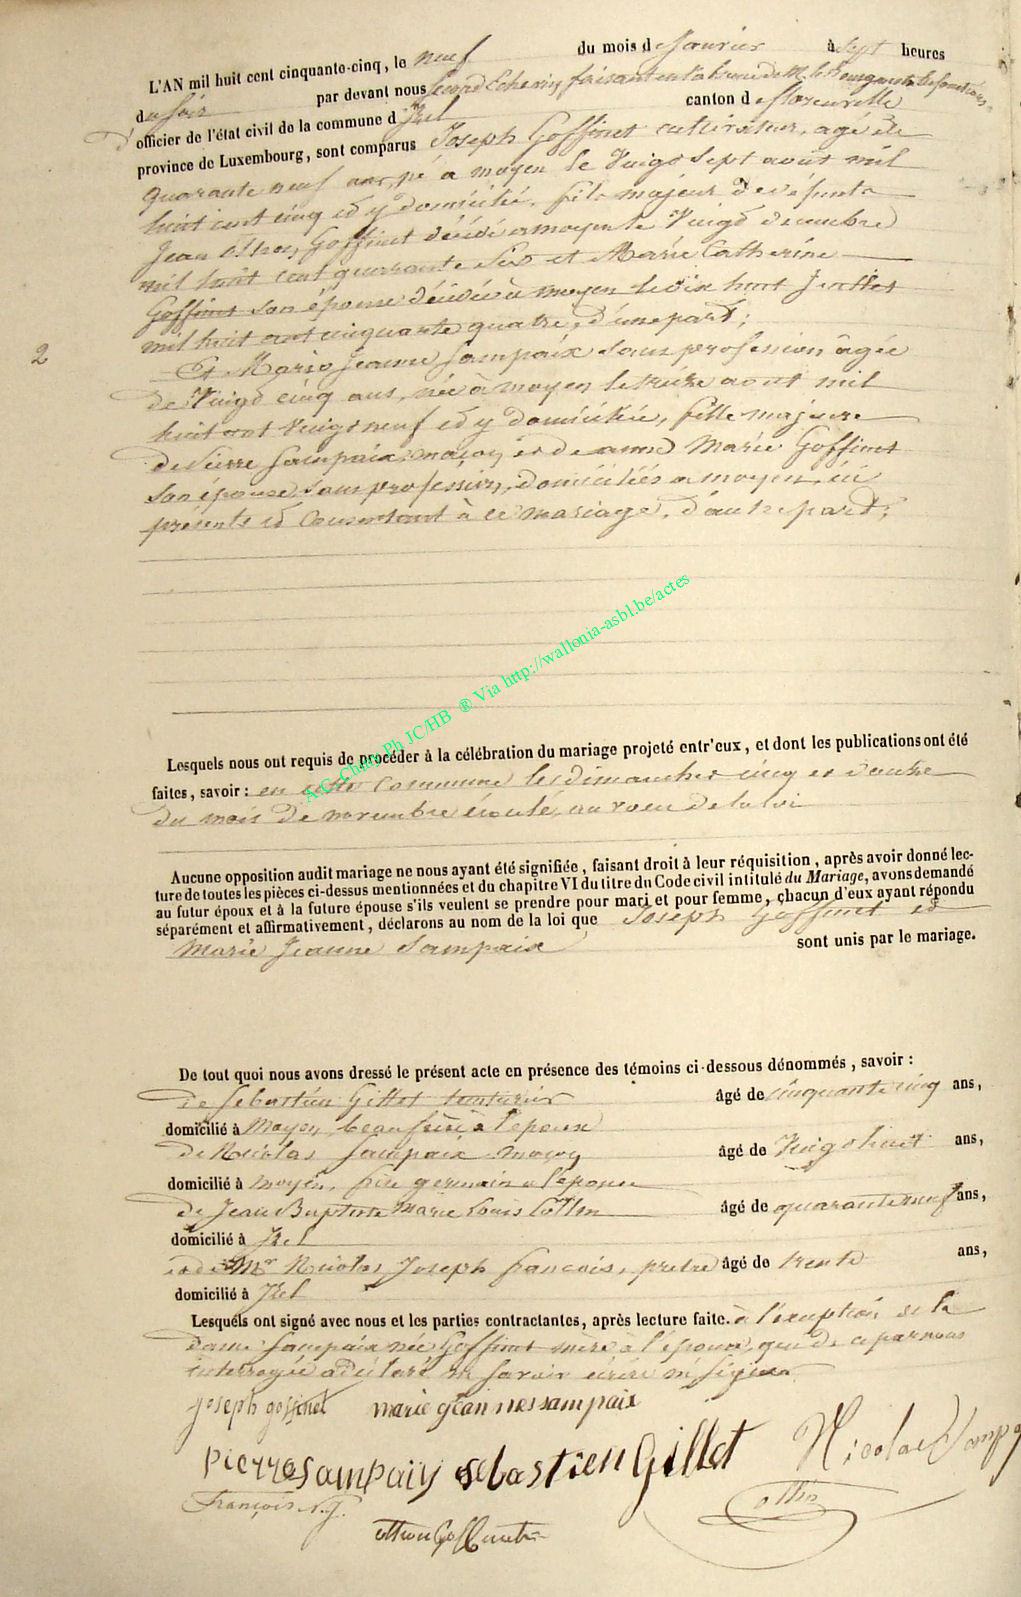 L'AN mil huit cent cinquante-cinq, le neuf du mois de janvier à sept heures
du soir par devant nous second Echevin faisant en l'absence de M. le Bourgmestre les fonctions
d'officier de l'état civil de la commune d'Izel canton de florenville
province de Luxembourg, sont comparus Joseph Goffinet cultivateur, agé de
quarante neuf ans, né à moyen le vingt sept août mil
huit cent cinq et y domicilié, fils majeur de défunts
Jean Goffinet décédé a moyen le vingt decembre
mil huit cent quarante six et Marie Catherine
Goffinet son épouse décédée à moyen le dix huit Juillet
mil huit cent cinquante quatre, d'une part;
2
Et Marie Jeanne Sampaix sans profession âgée
de vingt cinq ans, née à moyen le treize aout mil
huit cent vingt neuf et y domiciliée, fille majeure
de Pierre Sampaix, maçon et de anne Marie Goffinet
son épouse, sans profession, domiciliés a moyen, ici
présents et consentant à ce mariage, d'autre part;
A.G-Chiny Ph JC/HB ® Via http://wallonia-asbl.be/actes
Lesquels nous ont requis de procéder à la célébration du mariage projeté entr'eux, et dont les publications ont été
faites, savoir : en cette commune les dimanches cinq et douze
du mois de novembre écoulé, au voeu de la loi
Aucune opposition audit mariage ne nous ayant été signifiée, faisant droit à leur réquisition, après avoir donné lec-
ture de toutes les pièces ci-dessus mentionnées et du chapitre VI du titre du Code civil intitulé du Mariage, avons demandé
au futur époux et à la future épouse s'ils veulent se prendre pour mari et pour femme, chacun d'eux ayant répondu
séparément et affirmativement, déclarons au nom de la loi que Joseph Goffinet et
Marie Jeanne Sampaix sont unis par le mariage.
De tout quoi nous avons dressé le présent acte en présence des témoins ci-dessous dénommés, savoir :
de Sebastien Gillet âgé de cinquante cinq ans,
domicilié à Moyen, beau frère à l'époux
de Nicolas Sampaix maçon âgé de vingt huit ans,
domicilié à moyen, frère germain a l'épouse
de Jean Baptiste Marie Louis âgé de quarante neuf ans,
domicilié à Izel
et de Mr Nicolas Joseph françois, pretre âgé de trente ans,
domicilié à Izel
Lesquels ont signé avec nous et les parties contractantes, après lecture faite. à l'exception de la
dame Sampaix née Goffinet mère à l'épouse, qui de ce par nous
interrogée a déclaré ne savoir écrire ni signer
joseph goffinet marie jean nes sampaix
pierre sampaix sebastien Gillet Nicolas Samp
François N.J.